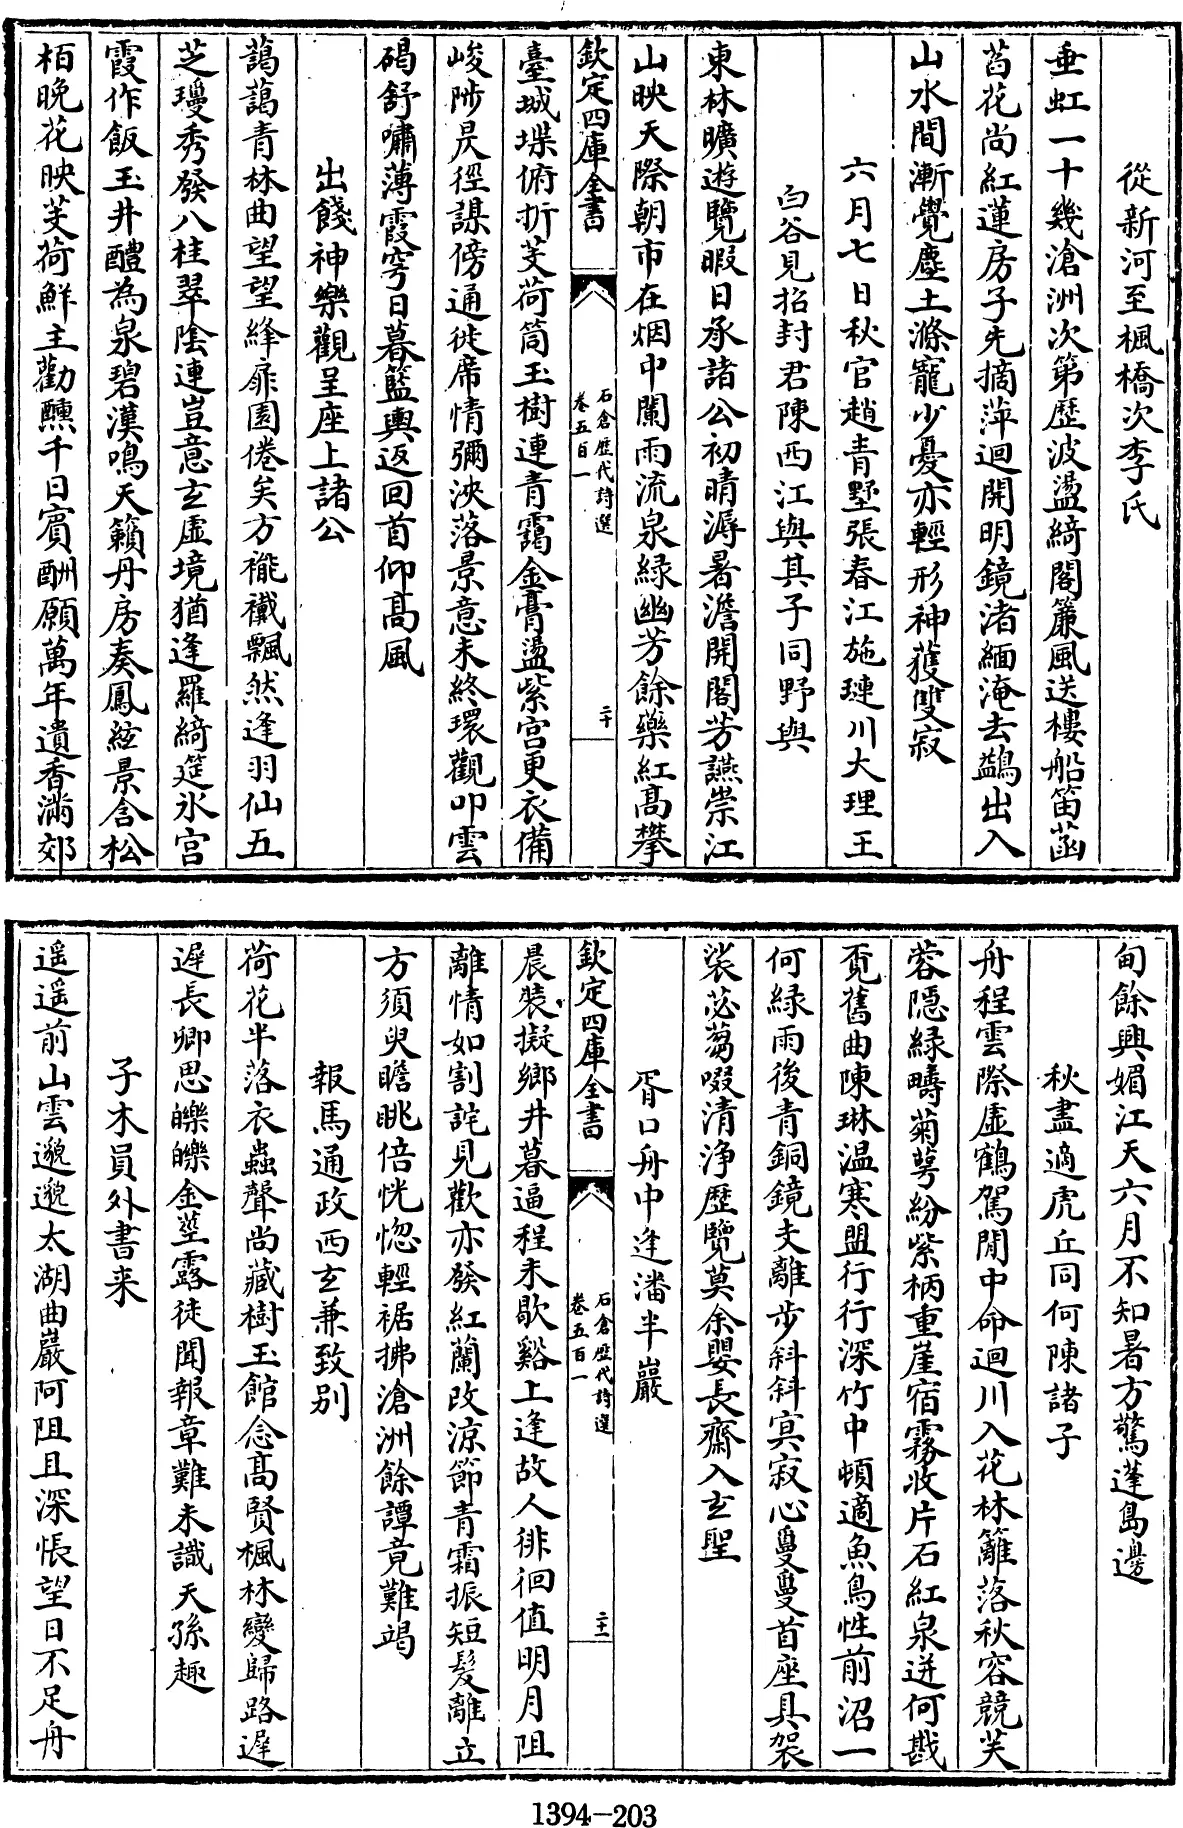 從新河至楓橋次李氏
垂虹一十幾滄洲次第歷波盪綺閣簾風送樓船笛菡
萏花尚紅蓮房子先摘萍迴開明鏡渚緬淹去鷁出入
山水間漸覺塵土滌寵少憂亦輕形神獲雙寂
六月七日秋官趙青墅張春江施璉川大理王
白谷見招封君陳西江與其子同野與
東林曠遊覽暇日承諸公初晴溽暑澹開閣芳讌崇江
山映天際朝市在烟中闌雨流泉緑幽芳餘藥紅高攀
欽定四庫全書
石倉歷代詩選
卷五百一
二十
臺城堞俯折芰荷筒玉樹連青靄金膏盪紫宫更衣備
峻陟昃徑謀傍通徙席情彌泱落景意未終環觀叩雲
碣舒嘯薄霞穹日暮籃輿返回首仰高風
出餞神樂觀呈座上諸公
藹藹青林曲望望絳扉園倦矣方褦襶飄然逢羽仙五
芝璦秀發八桂翠陰連豈意玄虚境猶逢羅綺筵氷宫
霞作飯玉井醴為泉碧漢鳴天籟丹房奏鳳絃景含松
栢晚花映芰荷鮮主勸醺千日賓酬願萬年遺香滿郊
甸餘興媚江天六月不知暑方驚蓬島邊
秋盡適虎丘同何陳諸子
舟程雲際虚鶴駕閒中命迴川入花林籬落秋容競芙
蓉隠緑疇菊萼紛紫柄重崖宿霧收片石紅泉迸何戡
覔舊曲陳琳温寒盟行行深竹中頓適魚鳥性前沼一
何緑雨後青銅鏡支離步斜斜寘寂心㬅㬅首座具袈
裟苾蒭啜清淨歷覽莫余嬰長齋入玄聖
胥口舟中逢潘半巖
欽定四庫全書
石倉歷代詩選
卷五百一
二十一
晨裝擬鄉井暮逼程未歇谿上逢故人徘徊值明月阻
離情如割詫見歡亦發紅蘭改涼節青霜振短髮離立
方須臾瞻眺倍恍惚輕裾拂滄洲餘譚竟難竭
報馬通政西玄兼致别
荷花半落衣蟲聲尚藏樹玉館念高賢楓林變歸路遲
遲長卿思皪皪金莖露徒聞報章難未識天孫趣
子木員外書来
遥遥前山雲邈邈太湖曲巖阿阻且深悵望日不足舟
1394-203